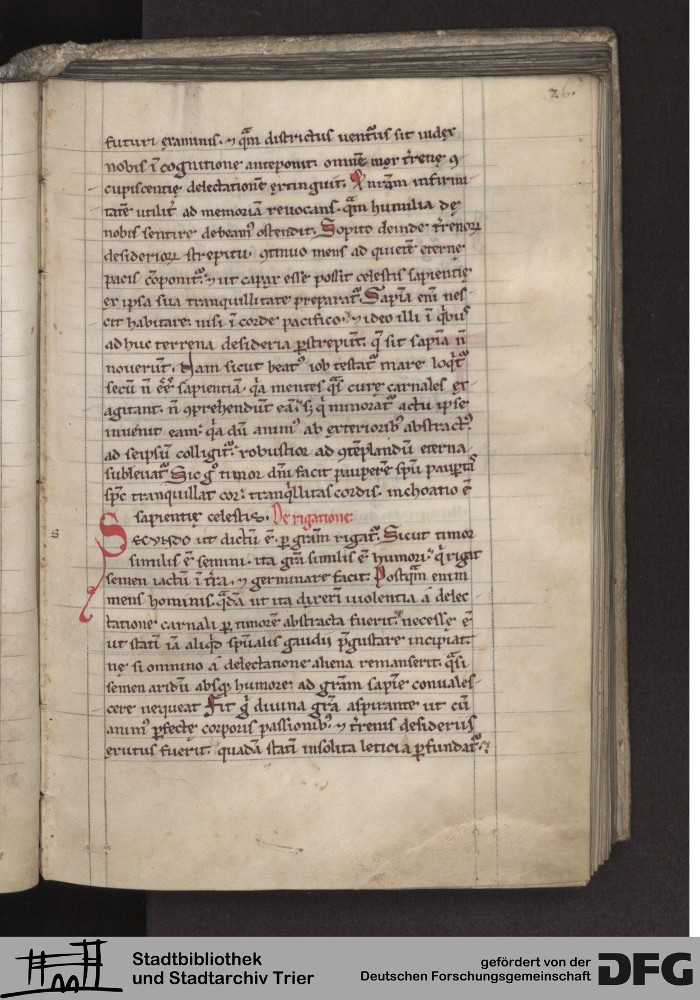 26.
futuri examinis. ⁊ q̄m districtus uentur᷒ sit iudex
nobis ī cognitione anteponit. omnē mox t̄renę ꝯ
cupiscentię delectationē extinguit. Et nr̄am infirmi
tatē utilit̄ ad memoriā reuocans. q̄m humilia de
nobis sentire debeam᷒ ostendit. Sopito deinde t̄renoꝝ
desiderioꝝ strepitu. ꝯtinuo mens ad quietē eternę
pacis cōponit᷑. ⁊ ut capax esse possit celestis sapientię
ex ipsa sua tranquillitate preparat᷑. Sapīa eni̅ nes
cit habitare. nisi ī corde pacifico. ⁊ ideo illi ī qͥbus
ad huc terrena desideria ꝑstrepunt. q̄ sit sapīa n̄
nouerunt. Nam sicut beat᷒ iob testat᷑ mare loqͥt᷑
secū n̄ ēē sapientiam. qͥa mentes qͣs curę carnales ex
agitant. n̄ ꝯprehendunt eā. sꝫ qͥ minorat᷑ actu ipse
inuenit eam. qͥa dū anim᷒ ab exteriorib᷒ abstract᷒
ad seipsū colligit᷑. robustior ad ꝯtēplandū eterna
subleuat᷑. Sic gͦ timor dn̄i facit pauperē spū paup̄tas
sp̄c tranquillat cor. tranqͥllitas cordis. inchoatio ē
sapientię celestis. De rigatione.
SECUNDO ut dictū ē. ꝑ gram̄ rigat᷑. Sicut timor
similis ē semini. ita gr̄a similis ē humori. qͥ rigat
semen iactū ī t̄ra. ⁊ germinare facit. Postqͣm enim
mens hominis. qͣdā ut ita dixerī uiolentia a delec
tatione carnali ꝑ timorē abstracta fuerit. necesse ē
ut statī iā aliqͥd spūalis gaudii p̄gustare incipiat.
ne si omnino a delectatione aliena remanserit. qͣsi
semen aridū absqꝫ humore. ad gram̄ sapīe conuales
cere nequeat. Fit gͦ diuina gr̄a aspirante ut cū
anim᷒ ꝑfecte corporis passionib᷒. ⁊ t̄renis desideriis
exutus fuerit. quadā statī insolita leticia ꝑfundat᷑.
Stadtbibliothek
und Stadtarchiv Trier
gefördert von der
Deutschen Forschungsgemeinschaft
DFG